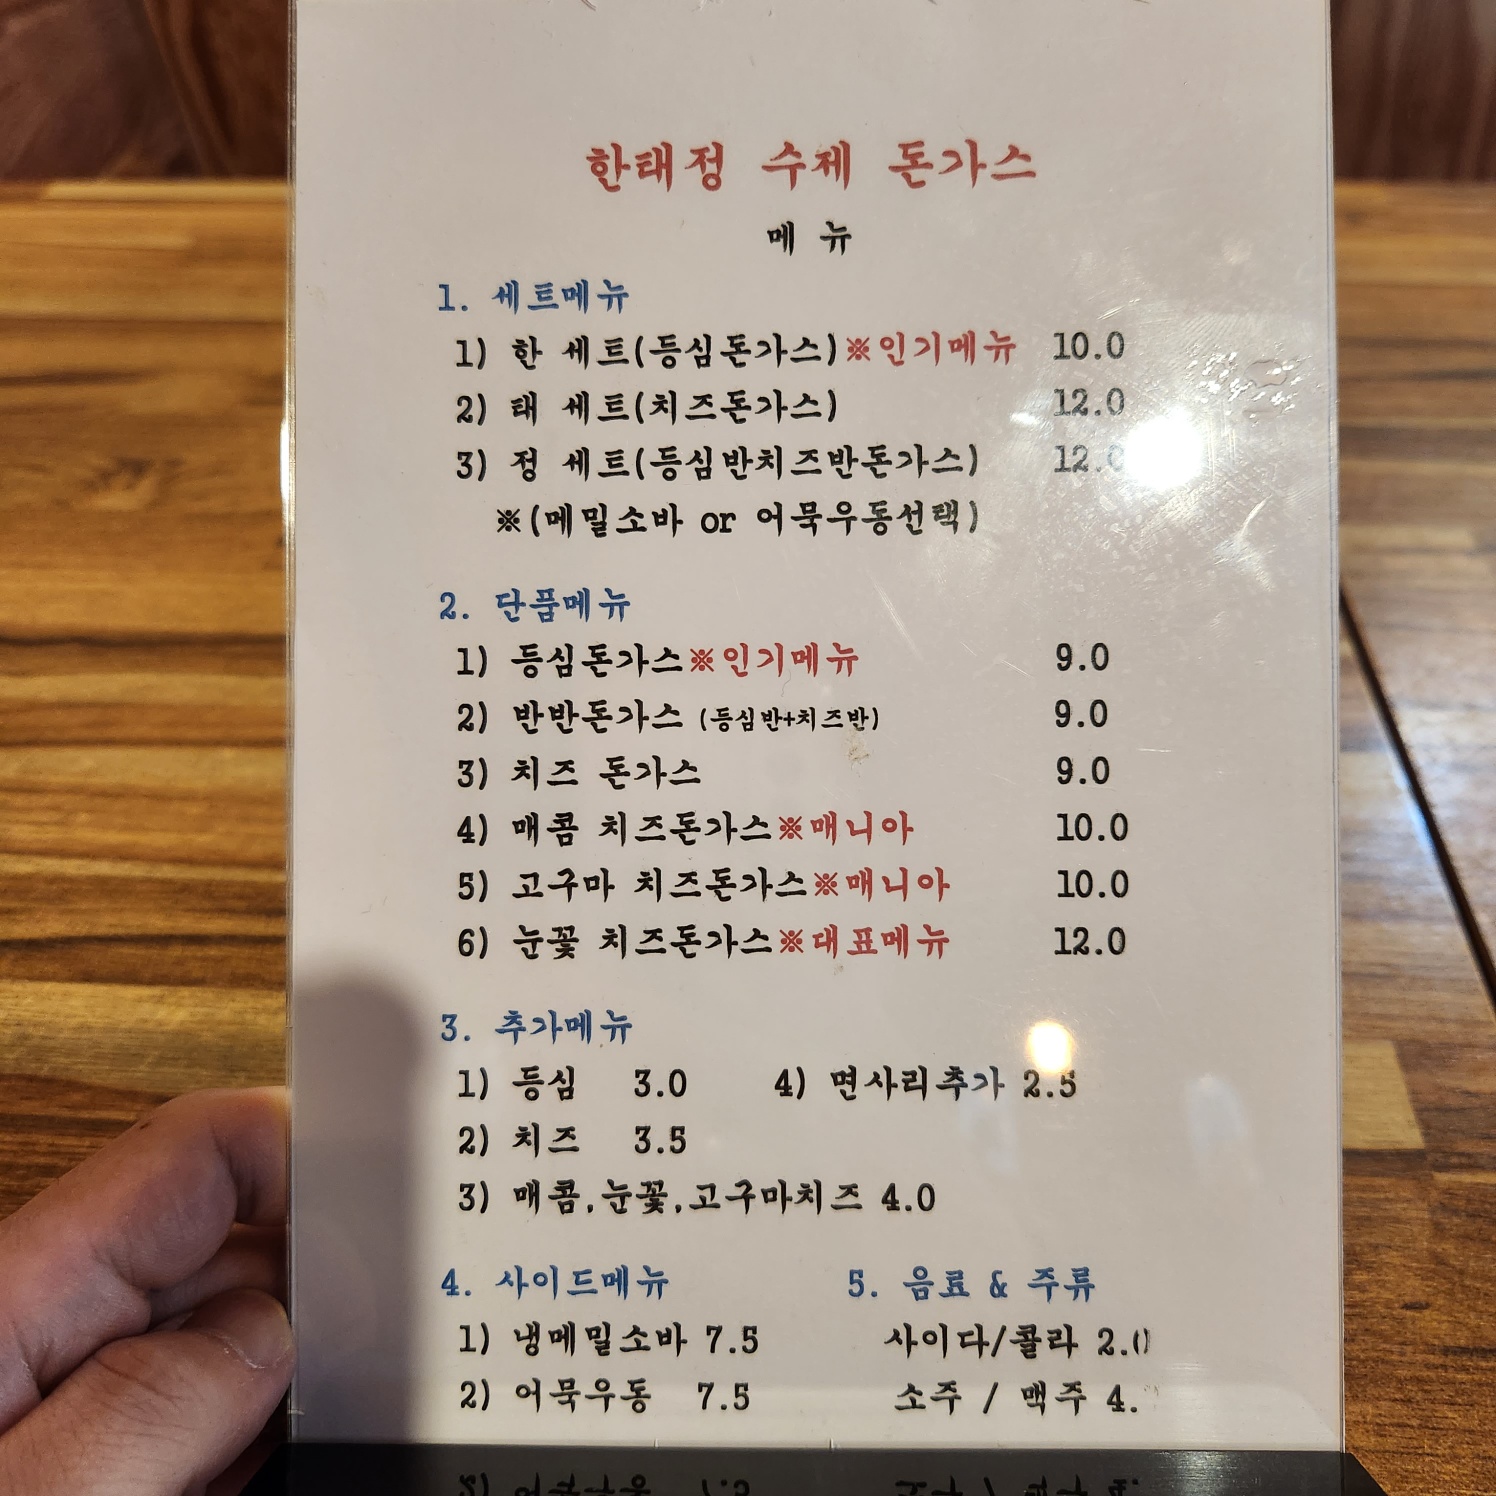 한태정 수제 돈가스
메 뉴
1. 세트메뉴
1) 한 세트(등심돈가스)※인기메뉴 10.0
2) 태 세트(치즈돈가스) 12.0
3) 정 세트(등심반치즈반돈가스)
※(메밀소바 or 어묵우동선택)
2. 단품메뉴
1) 등심돈가스※인기메뉴 9.0
2) 반반돈가스 (등심반+치즈반) 9.0
3) 치즈 돈가스 9.0
4) 매콤 치즈돈가스※매니아 10.0
5) 고구마 치즈돈가스※매니아 10.0
6) 눈꽃 치즈돈가스※대표메뉴 12.0
3. 추가메뉴
1) 등심 3.0 4) 면사리추가 2.5
2) 치즈 3.5
3) 매콤,눈꽃,고구마치즈 4.0
4. 사이드메뉴 5. 음료 & 주류
1) 냉메밀소바 7.5 사이다/콜라 2.0
2) 어묵우동 7.5 소주 / 맥주